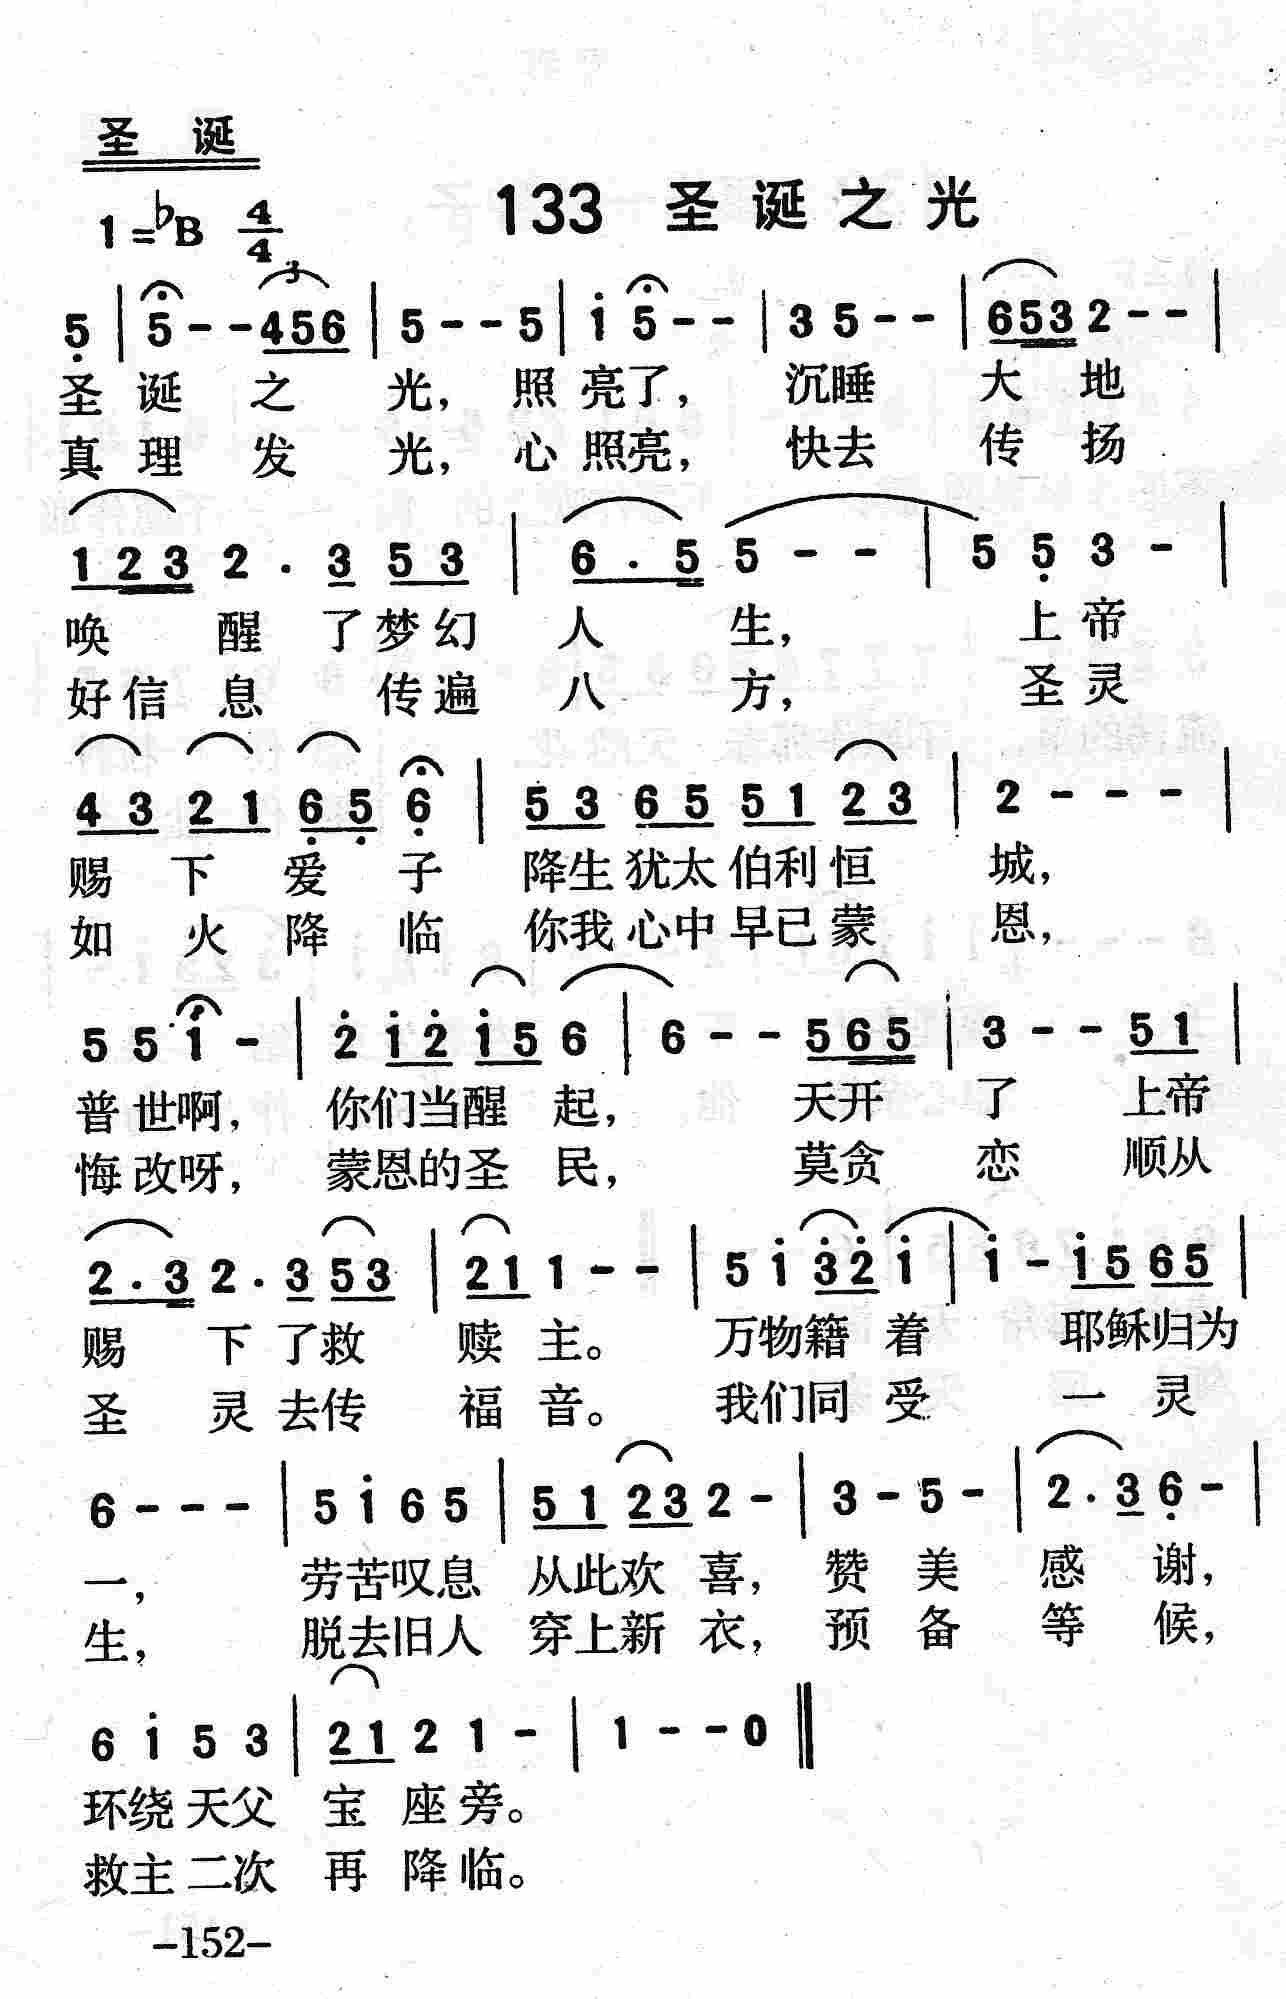 圣 诞
133 圣诞之光
1=♭B 4/4
3
5 | 5 - - 456 | 5 - - 5 | i 5 - - | 3 5 - - | 653 2 - - |
圣 诞 之 光, 照 亮了, 沉睡 大 地
真 理 发 光, 心 照亮, 快去 传 扬
123 2 . 3 53 | 6 . 5 5 - - | 5 5 3 - |
唤 醒 了梦幻 人 生, 上帝
好信 息 传遍 八 方, 圣灵
43 21 65 6 | 53 65 51 23 | 2 - - - |
赐 下 爱 子 降生犹太伯利恒 城,
如 火 降 临 你我心中早已蒙 恩,
5 5 i - | 2 i2 i5 6 | 6 - - 565 | 3 - - 51 |
普世啊, 你们当醒 起, 天开 了 上帝
悔改呀, 蒙恩的圣 民, 莫贪 恋 顺从
2 . 3 2 . 3 53 | 21 1 - - | 5 i 32 i | i - i5 65 |
赐 下 了救 赎 主。 万物籍 着 耶稣归为
圣 灵 去传 福 音。 我们同 受 一 灵
6 - - - | 5 i 6 5 | 51 23 2 - | 3 - 5 - | 2 . 3 6 - |
一, 劳苦叹息 从此欢 喜, 赞 美 感 谢,
生, 脱去旧人 穿上新 衣, 预 备 等 候,
6 i 5 3 | 21 2 1 - | 1 - - 0 ‖
环绕天父 宝 座旁。
救主二次 再 降临。
-152-